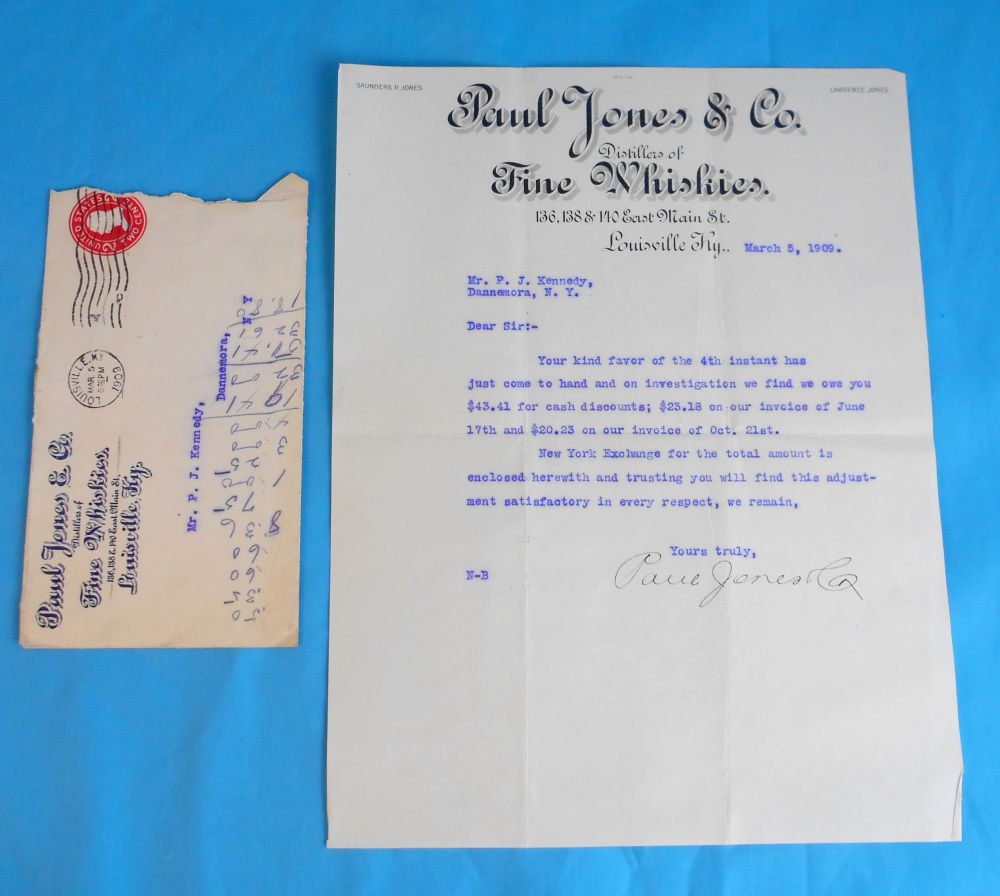 SAUNDERS P. JONES
LAWRENCE JONES
Paul Jones & Co.
Distillers of
Fine Whiskies.
136, 138 & 140 East Main St.
Louisville Ky..
March 5, 1909.
Mr. P. J. Kennedy,
Dannemora, N. Y.
Dear Sir:-
Your kind favor of the 4th instant has
just come to hand and on investigation we find we owe you
$43.41 for cash discounts; $23.18 on our invoice of June
17th and $20.23 on our invoice of Oct. 21st.
New York Exchange for the total amount is
enclosed herewith and trusting you will find this adjust-
ment satisfactory in every respect, we remain,
Yours truly,
N-B
Paul Jones & Co
Paul Jones & Co.
Distillers of
Fine Whiskies.
136, 138 & 140 East Main St.
Louisville, Ky.
LOUISVILLE, KY.
MAR 5
PM
1909
UNITED STATES
2
TWO CENTS
Mr. P. J. Kennedy,
Dannemora,
N Y